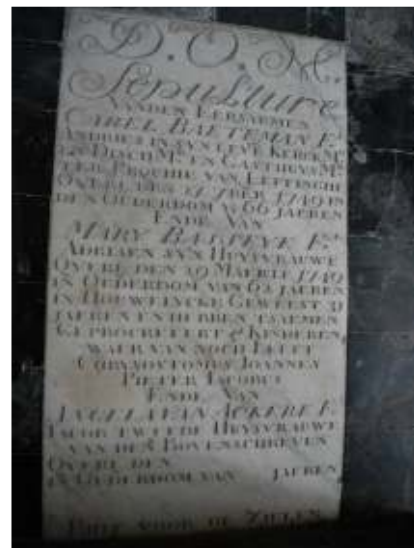 D. O. M.
Sepulture
VANDEN EERSAEMEN
CAREL BAETEMAN Fs
ANDRIES IN SYN LEVE KERCK Mr
EN DISCH Mr EN GASTHUYS Mr
PROCHIE VAN LEFFINGHE
OVERL DEN 7BER 1749 IN
DEN OUDERDOM 66 JAEREN
ENDE VAN
MARY Fa
ADRIAEN SYN HUYSVRAUWE
OVERL DEN 19 MAERTE 1749
IN OUDERDOM VAN 62 JAEREN
IN HOUWELYCKE GEWEEST
JAEREN ENDE TSAEMEN
GEPROCREEERT KINDEREN
WAER VAN NOCH LEEFT
JOANNES
PIETER JACOBUS
ENDE VAN
ACKERE F
JACOB TWEEDE HUYSVRAUWE
VAN DEN BOVENSCHREVEN
OVERL DEN
IN OUDERDOM VAN JAEREN
BIDT VOOR DE ZIELEN